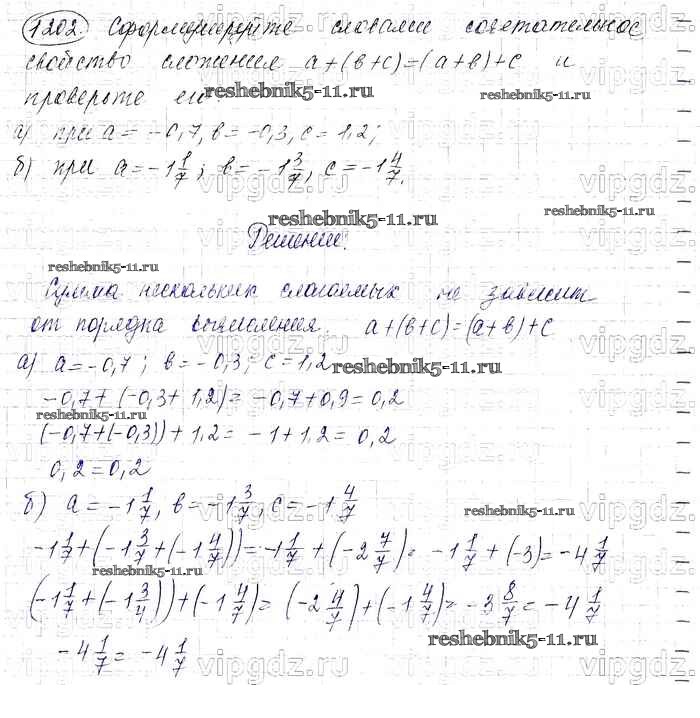 1202. Сформулируйте словами сочетательное
свойство сложения a+(в+c)=(a+в)+c и
проверьте его
reshebnik5-11.ru
reshebnik5-11.ru
а) при a=-0,7, в=-0,3, c=1,2;
б) при a=-1 1/7; в=-1 3/7, c=-1 4/7.
reshebnik5-11.ru
reshebnik5-11.ru
Решение:
reshebnik5-11.ru
Сумма нескольких слагаемых не зависит
от порядка вычисления. a+(в+c)=(a+в)+c
а) a=-0,7; в=-0,3; c=1,2
reshebnik5-11.ru
-0,7+(-0,3+1,2)=-0,7+0,9=0,2
reshebnik5-11.ru
(-0,7+(-0,3))+1,2=-1+1,2=0,2
0,2=0,2
б) a=-1 1/7, в=-1 3/7, c=-1 4/7
reshebnik5-11.ru
-1 1/7+(-1 3/7+(-1 4/7))=-1 1/7+(-2 7/7)=-1 1/7+(-3)=-4 1/7
reshebnik5-11.ru
(-1 1/7+(-1 3/4))+(-1 4/7)=(-2 4/7)+(-1 4/7)=-3 8/7=-4 1/7
reshebnik5-11.ru
-4 1/7=-4 1/7
vipgdz.ru vipgdz.ru vipgdz.ru